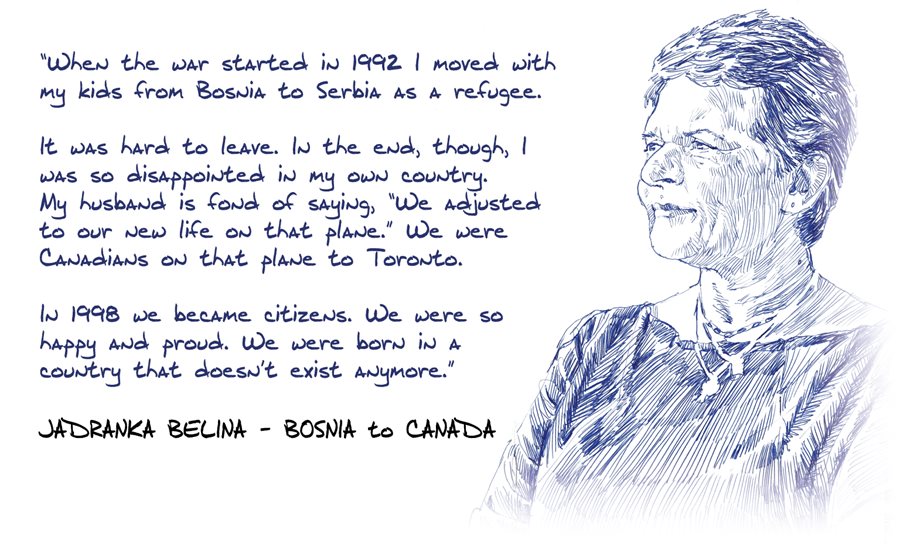 "When the war started in 1992 I moved with
my kids from Bosnia to Serbia as a refugee.
It was hard to leave. In the end, though, I
was so disappointed in my own country.
My husband is fond of saying, "We adjusted
to our new life on that plane." We were
Canadians on that plane to Toronto.
In 1998 we became citizens. We were so
happy and proud. We were born in a
country that doesn't exist anymore."
JADRANKA BELINA - BOSNIA to CANADA